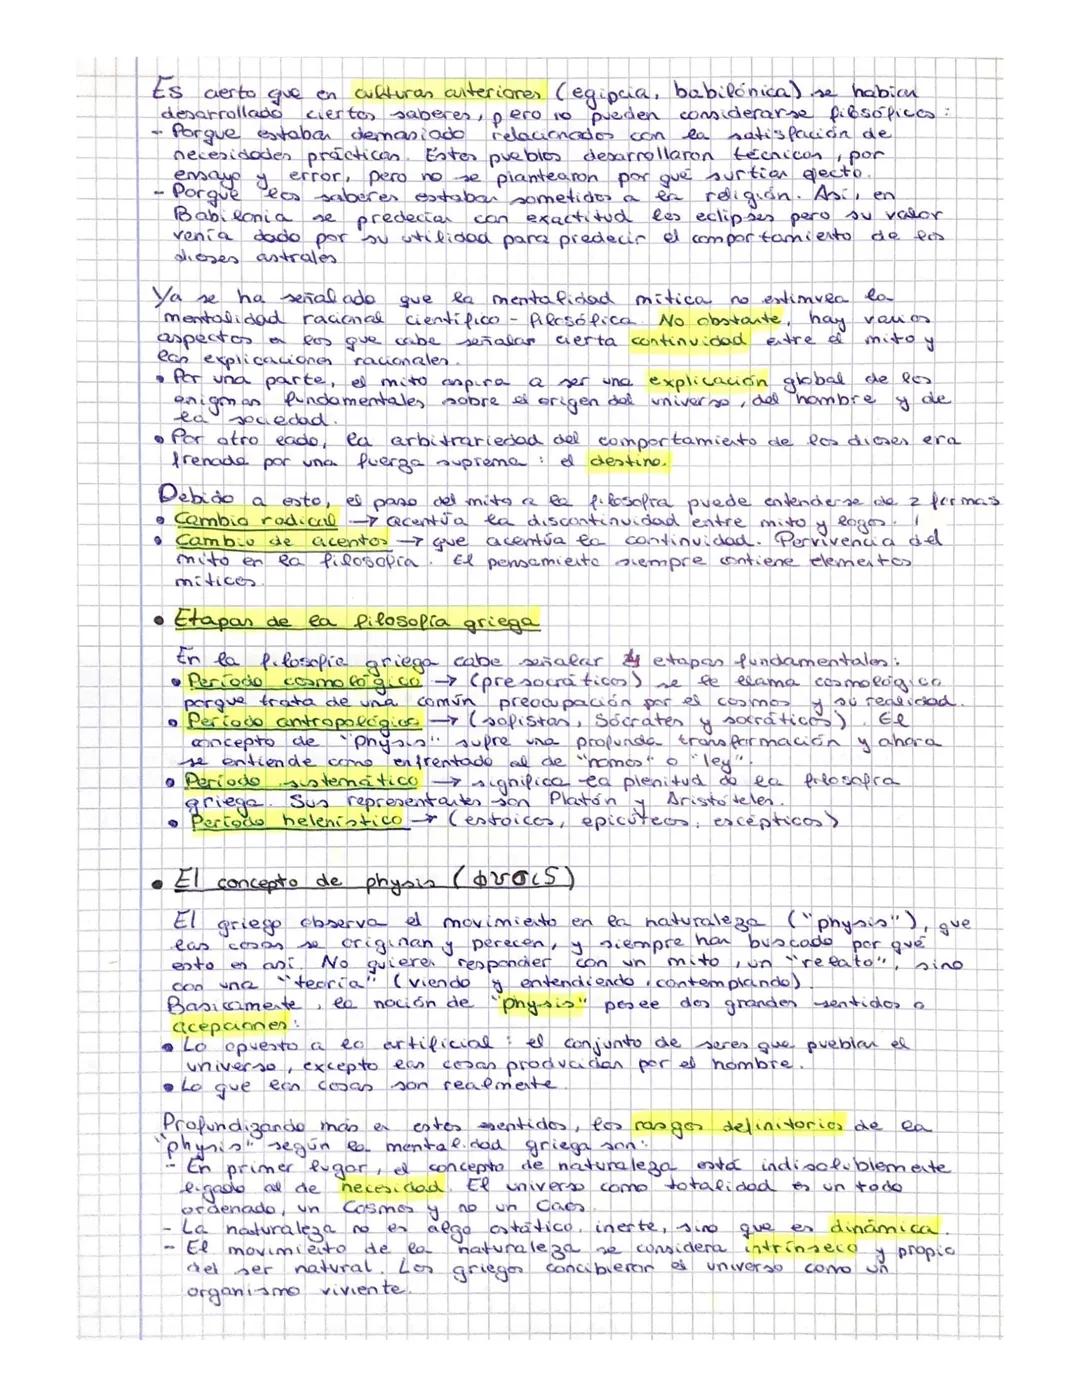 Es cierto que en culturas anteriores (egipcia, babilónica) se habían
desarrollado ciertos saberes, pero no pueden considerarse filosóficos:
- Porque estaban demasiado relacionados con la satisfación de
necesidades prácticas. Estos pueblos desarrollaron técnicas, por
ensayo y error, pero no se plantearon por qué surtían efecto.
- Porque los saberes estaban sometidos a la religión. Así, en
Babilonia se predecían con exactitud los eclipses pero su valor
venía dado por su utilidad para predecir el comportamiento de los
dioses astrales
Ya se ha señalado que la mentalidad mítica no estimula la
mentalidad racional científico - filosófica. No obstante, hay varios
aspectos en los que cabe señalar cierta continuidad entre el mito y
las explicaciones racionales.
• Por una parte, el mito aspira a ser una explicación global de los
enigmas fundamentales sobre el origen del universo, del hombre y de
la sociedad.
• Por otro lado, la arbitrariedad del comportamiento de los dioses era
frenada por una fuerza suprema: el destino.
Debido a esto, el paso del mito a la filosofía puede entenderse de 2 formas
• Cambio radical → acentúa la discontinuidad entre mito y logos.
• Cambio de acentos → que acentúa la continuidad. Pervivencia del
mito en la filosofía. El pensamiento siempre contiene elementos
míticos.
• Etapas de la filosofía griega
En la filosofía griega cabe señalar 4 etapas fundamentales:
• Período cosmológico → (presocráticos) se le llama cosmológico
porque trata de una común preocupación por el cosmos y su realidad.
• Período antropológico → (sofistas, Sócrates y socráticos). El
concepto de "physis" sufre una profunda transformación y ahora
se entiende como enfrentado al de "nomos" o "ley".
• Período sistemático → significa la plenitud de la filosofía
griega. Sus representantes son Platón y Aristóteles.
• Período helenístico → (estoicos, epicúreos, escépticos)
• El concepto de physis (φυσις)
El griego observa el movimiento en la naturaleza ("physis"), que
las cosas se originan y perecen, y siempre han buscado por qué
esto es así. No quieren responder con un mito, un "relato", sino
con una "teoría" (viendo y entendiendo, contemplando)
Basicamente, la noción de "physis" posee dos grandes sentidos o
acepciones:
• Lo opuesto a lo artificial: el conjunto de seres que pueblan el
universo, excepto las cosas producidas por el hombre.
• Lo que las cosas son realmente.
Profundizando más en estos sentidos, los rasgos definitorios de la
"physis" según la mentalidad griega son:
- En primer lugar, el concepto de naturaleza está indisolublemente
ligado al de necesidad. El universo como totalidad es un todo
ordenado, un Cosmos y no un Caos.
- La naturaleza no es algo estático, inerte, sino que es dinámica.
- El movimiento de la naturaleza se considera intrínseco y propio
del ser natural. Los griegos concibieron el universo como un
organismo viviente.